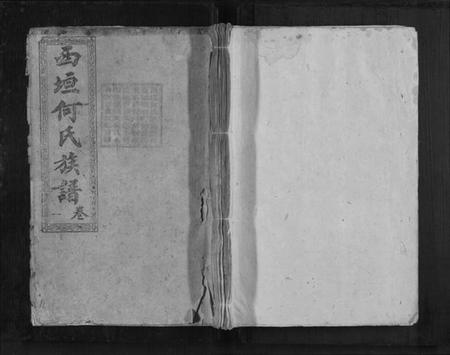 西垣何氏族譜
卷一